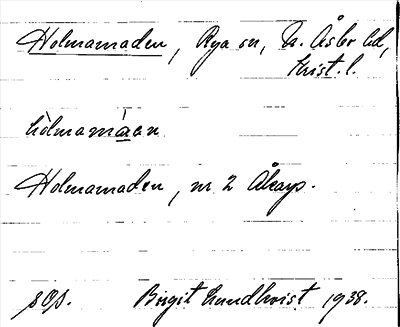 Holmamaden, Rya sn, N. Åsbo hd,
Krist. l.
hòlmamáan
Holmamaden, nr 2 Åkarp.
Birgit Lundkvist 1938.